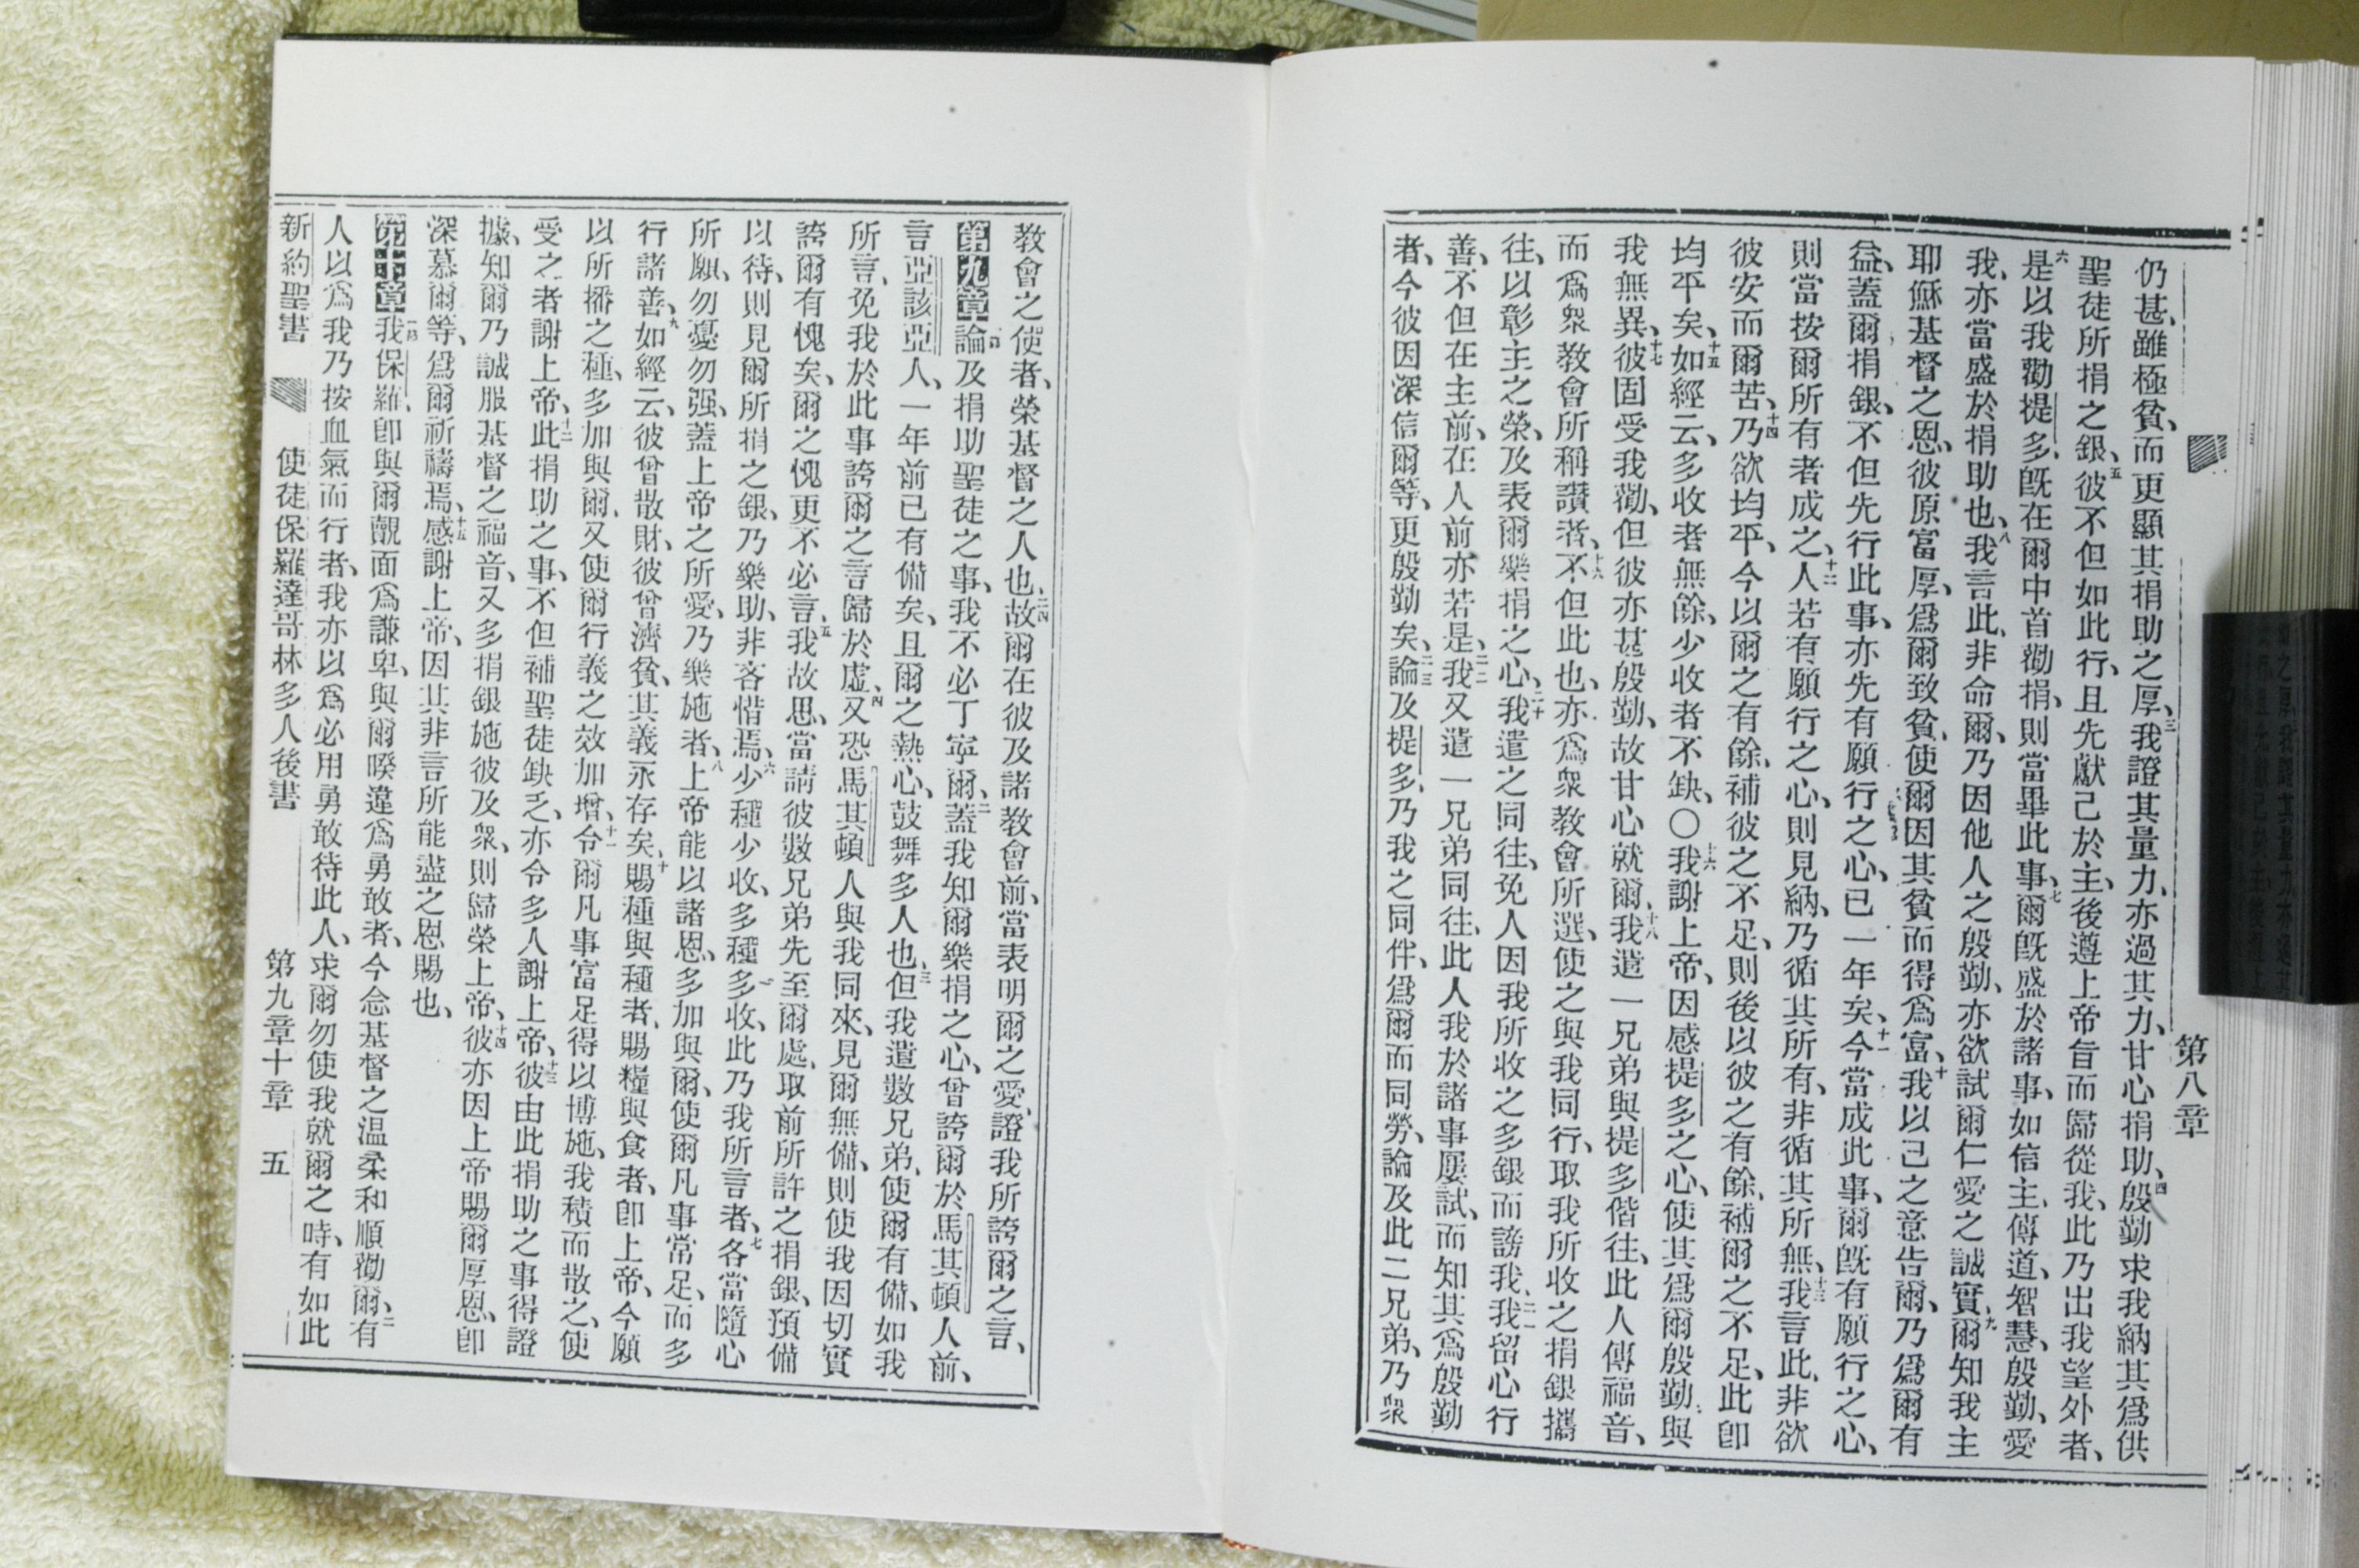 第八章
仍甚、雖極貧、而更顯其捐助之厚、三我證其量力、亦過其力、甘心捐助、四殷勤求我納其爲供
聖徒所捐之銀、五彼不但如此行、且先獻己於主、後遵上帝旨而歸從我、此乃出我望外者、
六是以我勸提多、旣在爾中首勸捐、則當畢此事、七爾旣盛於諸事、如信主、傳道、智慧、殷勤、愛
我、亦當盛於捐助也、八我言此、非命爾、乃因他人之殷勤、亦欲試爾仁愛之誠實、九爾知我主
耶穌基督之恩、彼原富厚、爲爾致貧、使爾因其貧而得爲富、十我以己之意告爾、乃爲爾有
益、蓋爾捐銀、不但先行此事、亦先有願行之心、已一年矣、十一今當成此事、爾旣有願行之心、
則當按爾所有者成之、十二人若有願行之心、則見納、乃循其所有、非循其所無、十三我言此、非欲
彼安而爾苦、十四乃欲均平、今以爾之有餘、補彼之不足、則後以彼之有餘、補爾之不足、此卽
均平矣、十五如經云、多收者無餘、少收者不缺、〇十六我謝上帝、因感提多之心、使其爲爾殷勤、與
我無異、十七彼固受我勸、但彼亦甚殷勤、故甘心就爾、十八我遣一兄弟與提多偕往、此人傳福音、
而爲衆教會所稱讚者、十九不但此也、亦爲衆教會所選、使之與我同行、取我所收之捐銀攜
往、以彰主之榮、及表爾樂捐之心、二十我遣之同往、免人因我所收之多銀而謗我、二一我留心行
善、不但在主前、在人前亦若是、二二我又遣一兄弟同往、此人我於諸事屢試、而知其爲殷勤
者、今彼因深信爾等、更殷勤矣、二三論及提多、乃我之同伴、爲爾而同勞、論及此二兄弟、乃衆
教會之使者、榮基督之人也、二四故爾在彼及諸教會前、當表明爾之愛、證我所誇爾之言、
第九章 一論及捐助聖徒之事、我不必丁寧爾、二蓋我知爾樂捐之心、曾誇爾於馬其頓人前、
言亞該亞人、一年前已有備矣、且爾之熱心、鼓舞多人也、三但我遣數兄弟、使爾有備、如我
所言、免我於此事誇爾之言歸於虛、四又恐馬其頓人與我同來、見爾無備、則使我因切實
誇爾有愧矣、爾之愧更不必言、五我故思、當請彼數兄弟先至爾處、取前所許之捐銀、預備
以待、則見爾所捐之銀、乃樂助、非吝惜焉、六少種少收、多種多收、此乃我所言者、七各當隨心
所願、勿憂勿强、蓋上帝之所愛、乃樂施者、八上帝能以諸恩、多加與爾、使爾凡事常足、而多
行諸善、九如經云、彼曾散財、彼曾濟貧、其義永存矣、十賜種與種者、賜糧與食者、卽上帝、今願
以所播之種、多加與爾、又使爾行義之效加增、十一令爾凡事富足得以博施、我積而散之、使
受之者謝上帝、十二此捐助之事、不但補聖徒缺乏、亦令多人謝上帝、十三彼由此捐助之事得證
據、知爾乃誠服基督之福音、又多捐銀施彼及衆、則歸榮上帝、十四彼亦因上帝賜爾厚恩、卽
深慕爾等、爲爾祈禱焉、十五感謝上帝、因其非言所能盡之恩賜也、
第十章 一我保羅、卽與爾覿面爲謙卑、與爾暌違爲勇敢者、今念基督之温柔和順勸爾、二有
人以爲我乃按血氣而行者、我亦以爲必用勇敢待此人、求爾勿使我就爾之時、有如此
新約聖書 使徒保羅達哥林多人後書 第九章十章 五